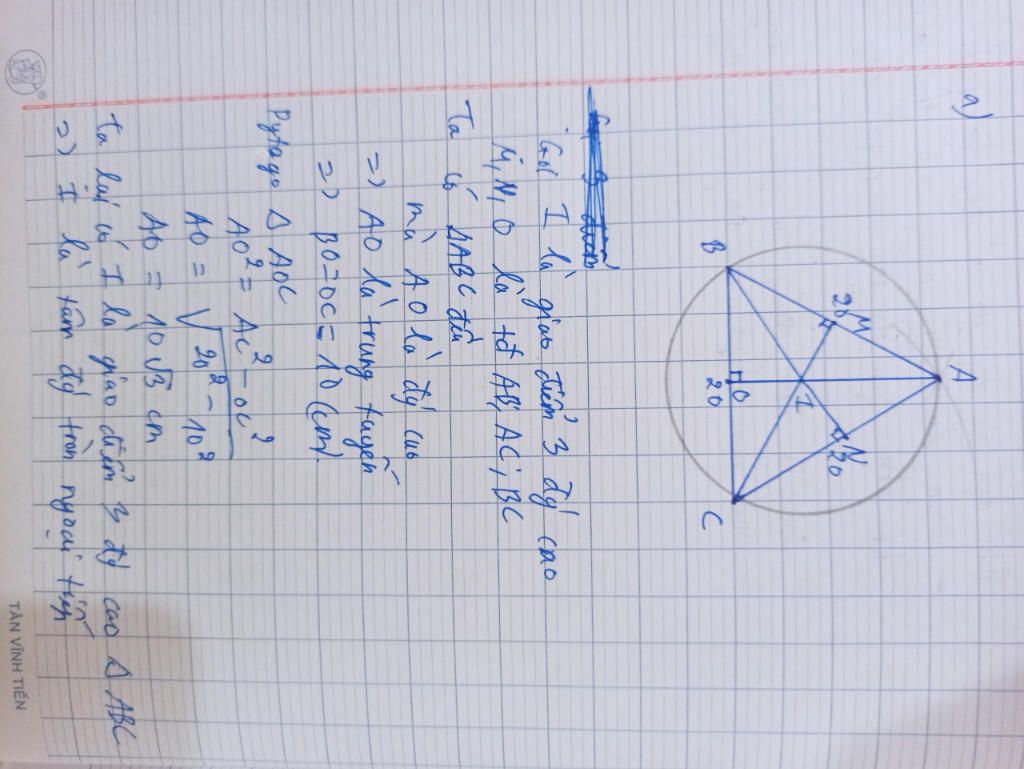 a)
A
M
20
N
20
I
B
O
20
C
Gọi I là giao điểm 3 đg cao
M, N, O là tđ AB, AC, BC
Ta có ΔABC đều
mà AO là đg cao
=> AO là trung tuyến
=> BO = OC = 10 (cm).
Pytago Δ AOC
AO² = AC² - OC²
AO = √20² - 10²
AO = 10√3 cm
ta lại có I là giao điểm 3 đg cao Δ ABC
=> I là tâm đg tròn ngoại tiếp
®
TÂN VĨNH TIẾN